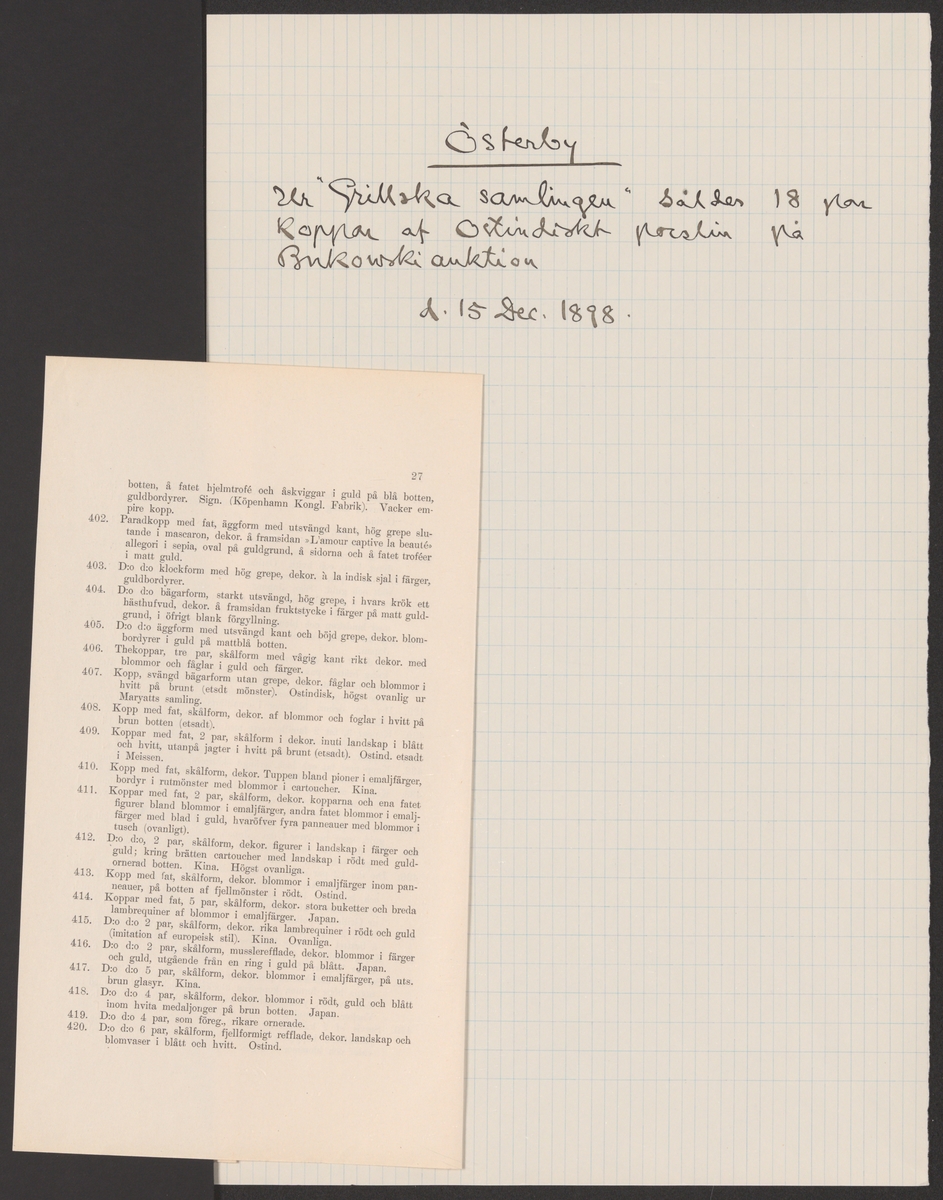 Österby
Ur "Grillska samlingen" såldes 18 par
Koppar af Ostindiskt porslin på
Bukowski auktion
d. 15 Dec. 1898.
27
botten, å fatet hjelmtrofé och åskviggar i guld på blå botten,
guldbordyrer. Sign. (Köpenhamn Kongl. Fabrik). Vacker em-
pire kopp.
402. Paradkopp med fat, äggform med utsvängd kant, hög grepe slu-
tande i mascaron, dekor. å framsidan »L'amour captive la beauté»
allegori i sepia, oval på guldgrund, å sidorna och å fatet troféer
i matt guld.
403. D:o d:o klockform med hög grepe, dekor. à la indisk sjal i färger,
guldbordyrer.
404. D:o d:o bägarform, starkt utsvängd, hög grepe, i hvars krök ett
hästhufvud, dekor. å framsidan fruktstycke i färger på matt guld-
grund, i öfrigt blank förgyllning.
405. D:o d:o äggform med utsvängd kant och böjd grepe, dekor. blom-
bordyrer i guld på mattblå botten.
406. Thekoppar, tre par, skålform med vågig kant rikt dekor. med
blommor och fåglar i guld och färger.
407. Kopp, svängd bägarform utan grepe, dekor. fåglar och blommor i
hvitt på brunt (etsdt mönster). Ostindisk, högst ovanlig ur
Maryatts samling.
408. Kopp med fat, skålform, dekor. af blommor och foglar i hvitt på
brun botten (etsadt).
409. Koppar med fat, 2 par, skålform i dekor. inuti landskap i blått
och hvitt, utanpå jagter i hvitt på brunt (etsadt). Ostind. etsadt
i Meissen.
410. Kopp med fat, skålform, dekor. Tuppen bland pioner i emaljfärger,
bordyr i rutmönster med blommor i cartoucher. Kina.
411. Koppar med fat, 2 par, skålform, dekor. kopparna och ena fatet
figurer bland blommor i emaljfärger, andra fatet blommor i emalj-
färger med blad i guld, hvaröfver fyra panneauer med blommor i
tusch (ovanligt).
412. D:o d:o, 2 par, skålform, dekor. figurer i landskap i färger och
guld; kring brätten cartoucher med landskap i rödt med guld-
ornerad botten. Kina. Högst ovanliga.
413. Kopp med fat, skålform, dekor. blommor i emaljfärger inom pan-
neauer, på botten af fjellmönster i rödt. Ostind.
414. Koppar med fat, 5 par, skålform, dekor. stora buketter och breda
lambrequiner af blommor i emaljfärger. Japan.
415. D:o d:o 2 par, skålform, dekor. rika lambrequiner i rödt och guld
(imitation af europeisk stil). Kina. Ovanliga.
416. D:o d:o 2 par, skålform, musslerefflade, dekor. blommor i färger
och guld, utgående från en ring i guld på blått. Japan.
417. D:o d:o 5 par, skålform, dekor. blommor i emaljfärger, på uts.
brun glasyr. Kina.
418. D:o d:o 4 par, skålform, dekor. blommor i rödt, guld och blått
inom hvita medaljonger på brun botten. Japan.
419. D:o d:o 4 par, som föreg., rikare ornerade.
420. D:o d:o 6 par, skålform, fjellformigt refflade, dekor. landskap och
blomvaser i blått och hvitt. Ostind.